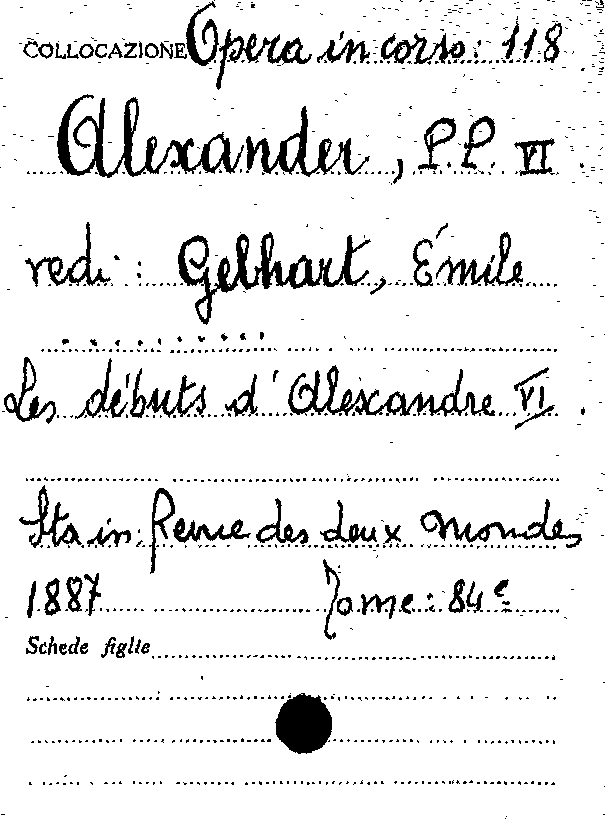 COLLOCAZIONE Opera in corso: 118
Alexander, P.P. VI.
vedi: Gebhart, Émile
..........
Les débuts d'Alexandre VI.
Sta in: Revue des deux Mondes
1887 Tome: 84e
Schede figlie